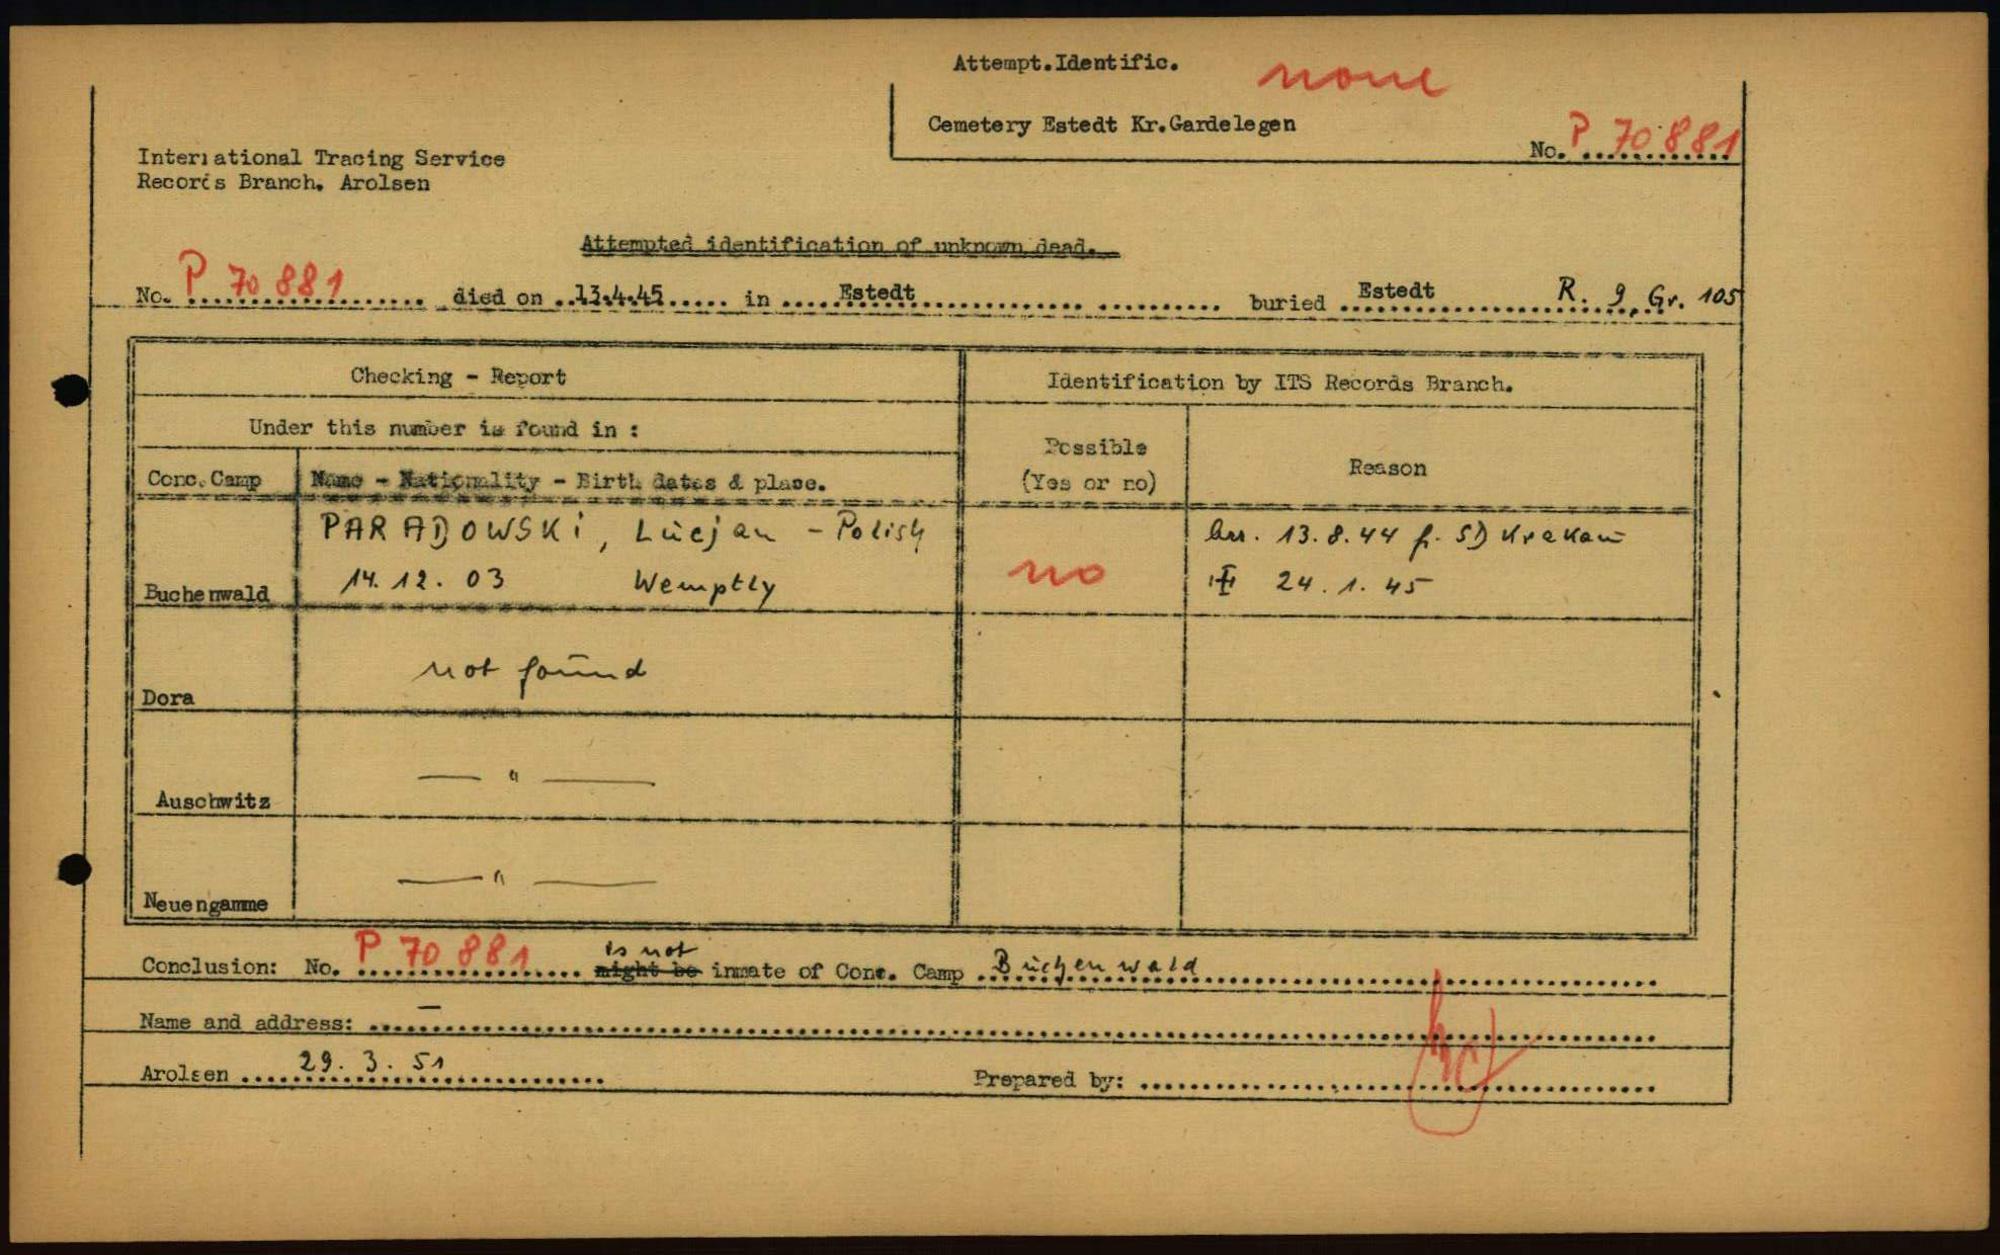 Attempt.Identific. none
Cemetery Estedt Kr.Gardelegen
No. P 70 881
International Tracing Service
Records Branch, Arolsen
Attempted identification of unknown dead.
No. P 70 881 died on 13.4.45 in Estedt buried Estedt R. 9, Gr. 105
Checking - Report
Identification by ITS Records Branch.
Under this number is found in :
Possible
(Yes or no)
Reason
Conc.Camp Name - Nationality - Birth dates & place.
Buchenwald PARADOWSKI, Lucjan - Polish
14.12.03 Wemptly
no
arr. 13.8.44 f. SD Krakau
24.1.45
Dora not found
Auschwitz — " —
Neuengamme — " —
Conclusion: No. P 70 881 is not might be inmate of Conc. Camp Buchenwald
Name and address: —
Arolsen 29.3.51 Prepared by: